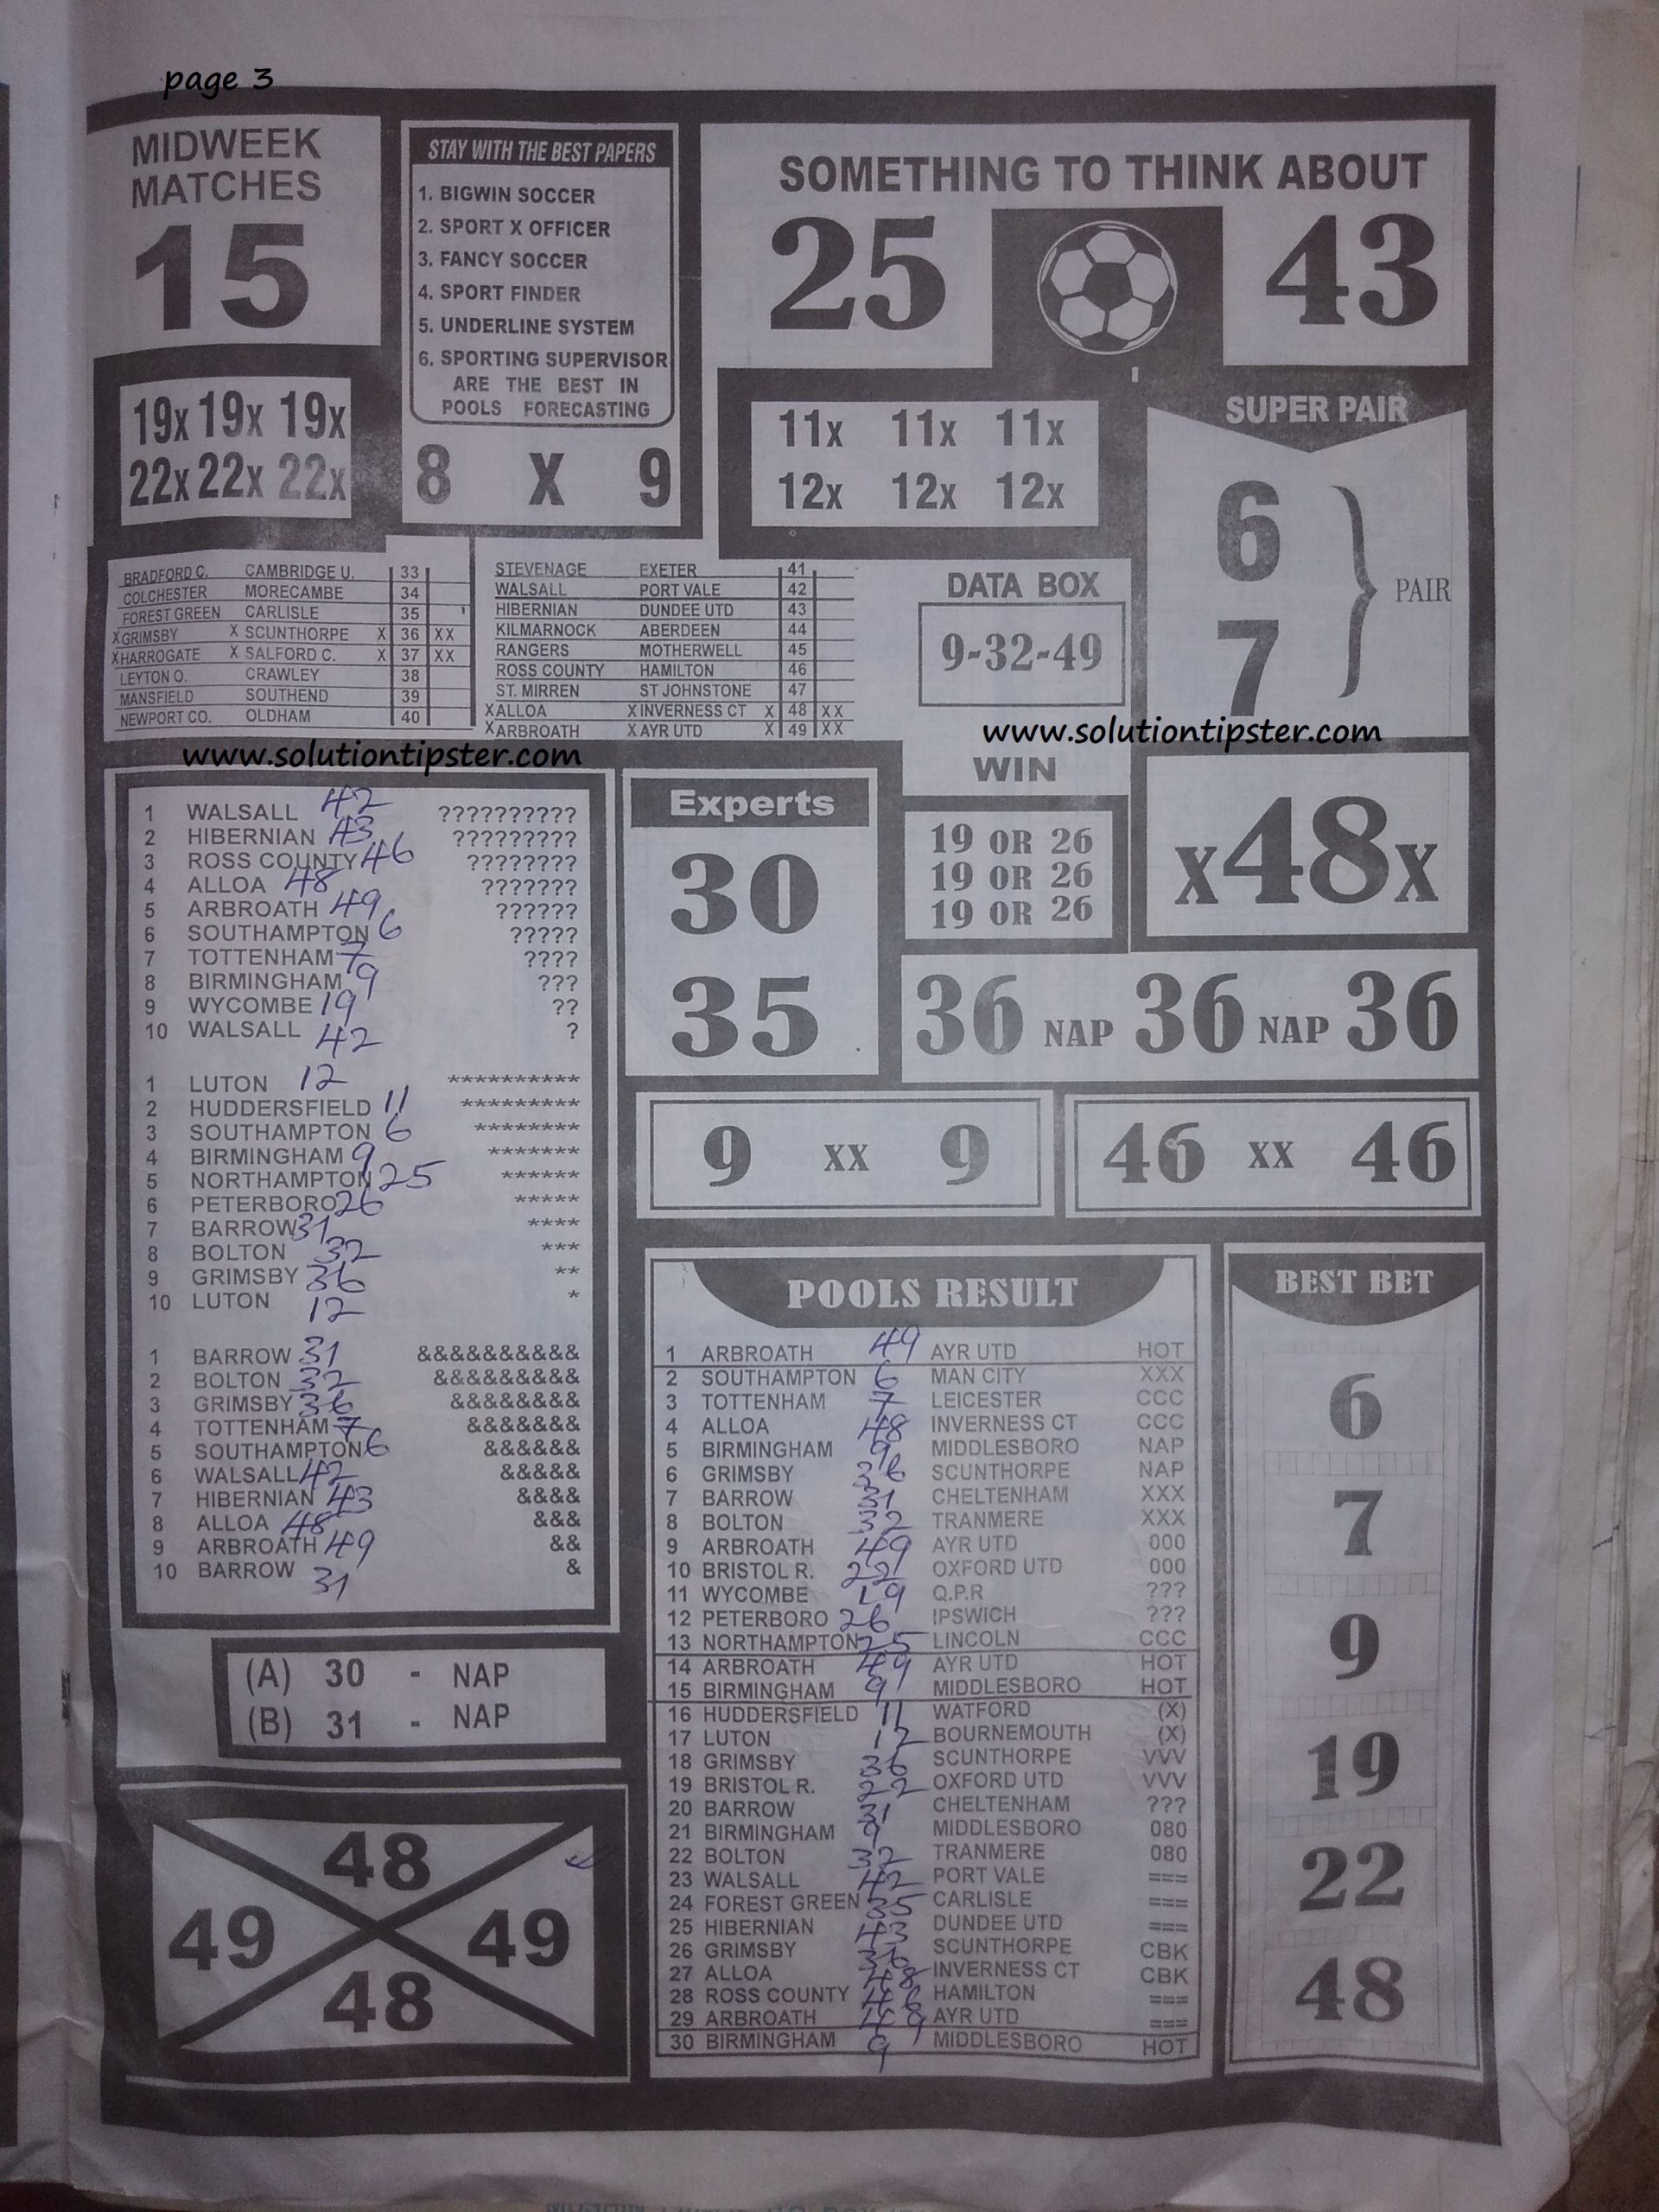 page 3
MIDWEEK
MATCHES
15
STAY WITH THE BEST PAPERS
1. BIGWIN SOCCER
2. SPORT X OFFICER
3. FANCY SOCCER
4. SPORT FINDER
5. UNDERLINE SYSTEM
6. SPORTING SUPERVISOR
ARE THE BEST IN
POOLS FORECASTING
8 X 9
SOMETHING TO THINK ABOUT
25 43
19x 19x 19x
22x 22x 22x
11x 11x 11x
12x 12x 12x
SUPER PAIR
6
7
PAIR
BRADFORD C. CAMBRIDGE U. 33
COLCHESTER MORECAMBE 34
FOREST GREEN CARLISLE 35
X GRIMSBY X SCUNTHORPE X 36 XX
X HARROGATE X SALFORD C. X 37 XX
LEYTON O. CRAWLEY 38
MANSFIELD SOUTHEND 39
NEWPORT CO. OLDHAM 40
STEVENAGE EXETER 41
WALSALL PORT VALE 42
HIBERNIAN DUNDEE UTD 43
KILMARNOCK ABERDEEN 44
RANGERS MOTHERWELL 45
ROSS COUNTY HAMILTON 46
ST. MIRREN ST JOHNSTONE 47
X ALLOA X INVERNESS CT X 48 XX
X ARBROATH X AYR UTD X 49 XX
DATA BOX
9-32-49
www.solutiontipster.com
www.solutiontipster.com
1 WALSALL 42 ??????????
2 HIBERNIAN 43 ?????????
3 ROSS COUNTY 46 ????????
4 ALLOA 48 ???????
5 ARBROATH 49 ??????
6 SOUTHAMPTON 6 ?????
7 TOTTENHAM 7 ????
8 BIRMINGHAM 9 ???
9 WYCOMBE 19 ??
10 WALSALL 42 ?
1 LUTON 12 **********
2 HUDDERSFIELD 11 *********
3 SOUTHAMPTON 6 ********
4 BIRMINGHAM 9 *******
5 NORTHAMPTON 25 ******
6 PETERBORO 26 *****
7 BARROW 31 ****
8 BOLTON 32 ***
9 GRIMSBY 36 **
10 LUTON 12 *
1 BARROW 31 &&&&&&&&&&
2 BOLTON 32 &&&&&&&&&
3 GRIMSBY 36 &&&&&&&&
4 TOTTENHAM 7 &&&&&&&
5 SOUTHAMPTON 6 &&&&&&
6 WALSALL 42 &&&&&
7 HIBERNIAN 43 &&&&
8 ALLOA 48 &&&
9 ARBROATH 49 &&
10 BARROW 31 &
Experts
30
35
WIN
19 OR 26
19 OR 26
19 OR 26
X48X
36 NAP 36 NAP 36
9 XX 9
46 XX 46
(A) 30 - NAP
(B) 31 - NAP
48
49 49
48
POOLS RESULT
1 ARBROATH 49 AYR UTD HOT
2 SOUTHAMPTON 6 MAN CITY XXX
3 TOTTENHAM 7 LEICESTER CCC
4 ALLOA 48 INVERNESS CT CCC
5 BIRMINGHAM 9 MIDDLESBORO NAP
6 GRIMSBY 36 SCUNTHORPE NAP
7 BARROW 31 CHELTENHAM XXX
8 BOLTON 32 TRANMERE XXX
9 ARBROATH 49 AYR UTD 000
10 BRISTOL R. 22 OXFORD UTD 000
11 WYCOMBE 19 Q.P.R ???
12 PETERBORO 26 IPSWICH ???
13 NORTHAMPTON 25 LINCOLN CCC
14 ARBROATH 49 AYR UTD HOT
15 BIRMINGHAM 9 MIDDLESBORO HOT
16 HUDDERSFIELD 11 WATFORD (X)
17 LUTON 12 BOURNEMOUTH (X)
18 GRIMSBY 36 SCUNTHORPE VVV
19 BRISTOL R. 22 OXFORD UTD VVV
20 BARROW 31 CHELTENHAM ???
21 BIRMINGHAM 9 MIDDLESBORO 080
22 BOLTON 32 TRANMERE 080
23 WALSALL 42 PORT VALE ===
24 FOREST GREEN 35 CARLISLE ===
25 HIBERNIAN 43 DUNDEE UTD ===
26 GRIMSBY 36 SCUNTHORPE CBK
27 ALLOA 48 INVERNESS CT CBK
28 ROSS COUNTY 46 HAMILTON ===
29 ARBROATH 49 AYR UTD ===
30 BIRMINGHAM 9 MIDDLESBORO HOT
BEST BET
6
7
9
19
22
48